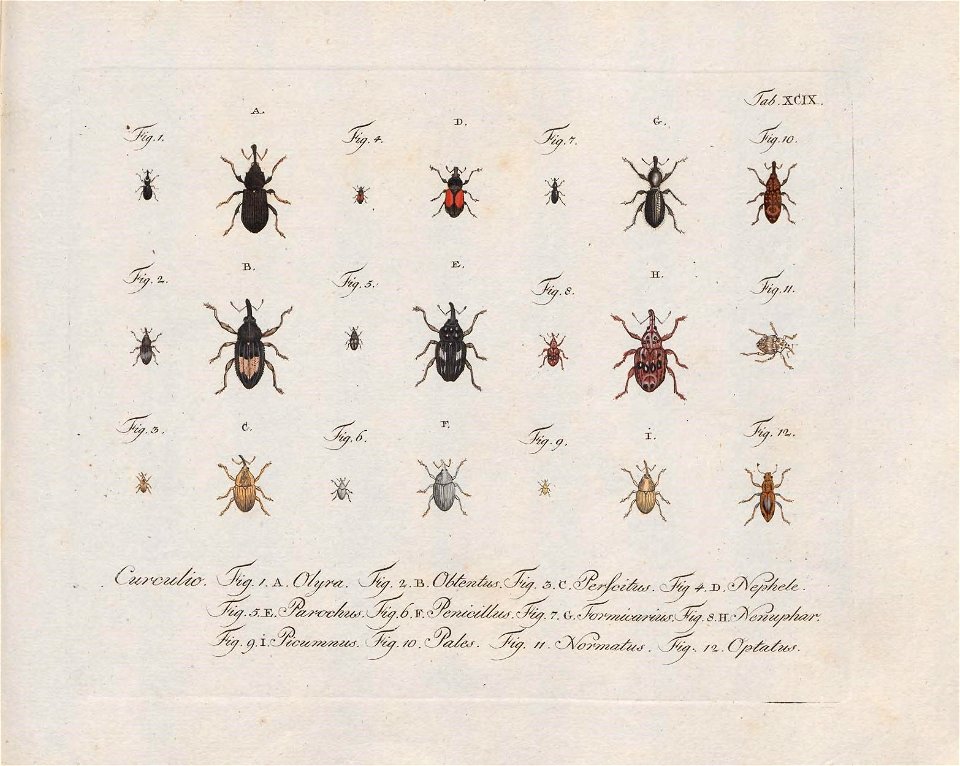 Tab. XCIX.
A.
D.
G.
Fig. 1.
Fig. 4.
Fig. 7.
Fig. 10.
B.
E.
H.
Fig. 2.
Fig. 5.
Fig. 8.
Fig. 11.
C.
F.
I.
Fig. 3.
Fig. 6.
Fig. 9.
Fig. 12.
Curculio. Fig. 1. A. Olyra. Fig. 2. B. Obtentus. Fig. 3. C. Perscitus. Fig 4. D. Nephele.
Fig. 5. E. Parochus. Fig. 6. F. Penicillus. Fig. 7. G. Formicarius. Fig. 8. H. Nenuphar.
Fig. 9. I. Picumnus. Fig. 10. Pales. Fig. 11. Normatus. Fig. 12. Optatus.